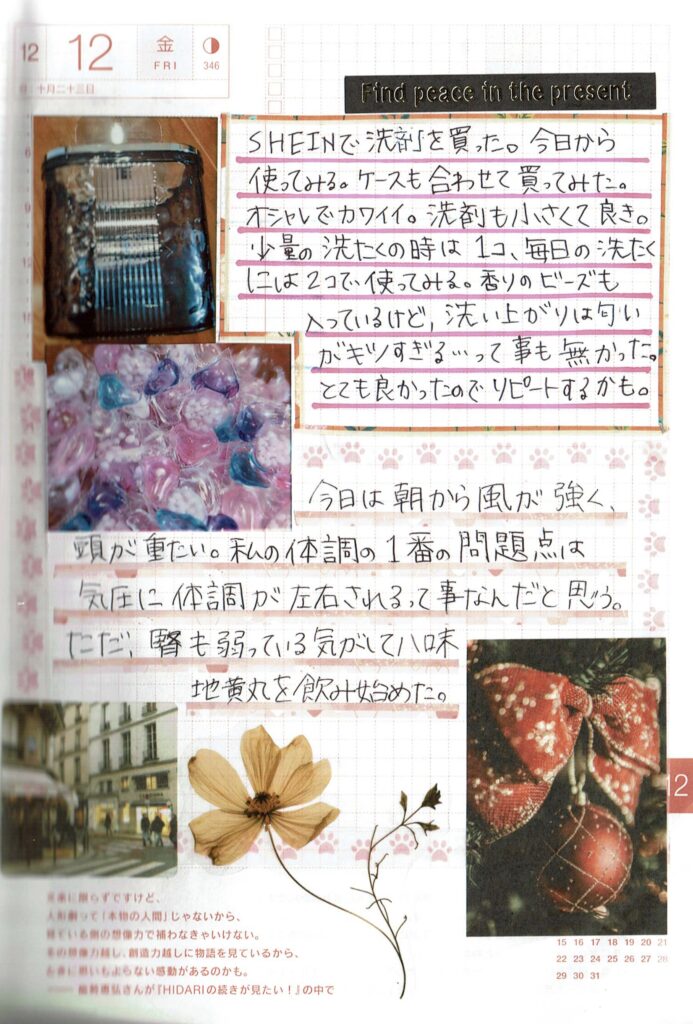 12
12
金
FRI
346
十月二十三日
Find peace in the present
SHEINで洗剤を買った。今日から
使ってみる。ケースも合わせて買ってみた。
オシャレでカワイイ。洗剤も小さくて良き。
少量の洗たくの時は1コ、毎日の洗たく
には2コで使ってみる。香りのビーズも
入っているけど、洗い上がりは匂い
がキツすぎる…って事も無かった。
とても良かったのでリピートするかも。
6
9
12
今日は朝から風が強く、
頭が重たい。私の体調の1番の問題点は
気圧に体調が左右されるって事なんだと思う。
ただ、腎も弱っている気がして八味
地黄丸を飲み始めた。
2
に限らずですけど、
人形劇って「本物の人間」じゃないから、
見ている側の想像力で補わなきゃいけない。
その想像力越し、創造力越しに物語を見ているから、
ときに思いもよらない感動があるのかも。
恵弘さんが『HIDARIの続きが見たい!』の中で
15 16 17 18 19 20 21
22 23 24 25 26 27 28
29 30 31